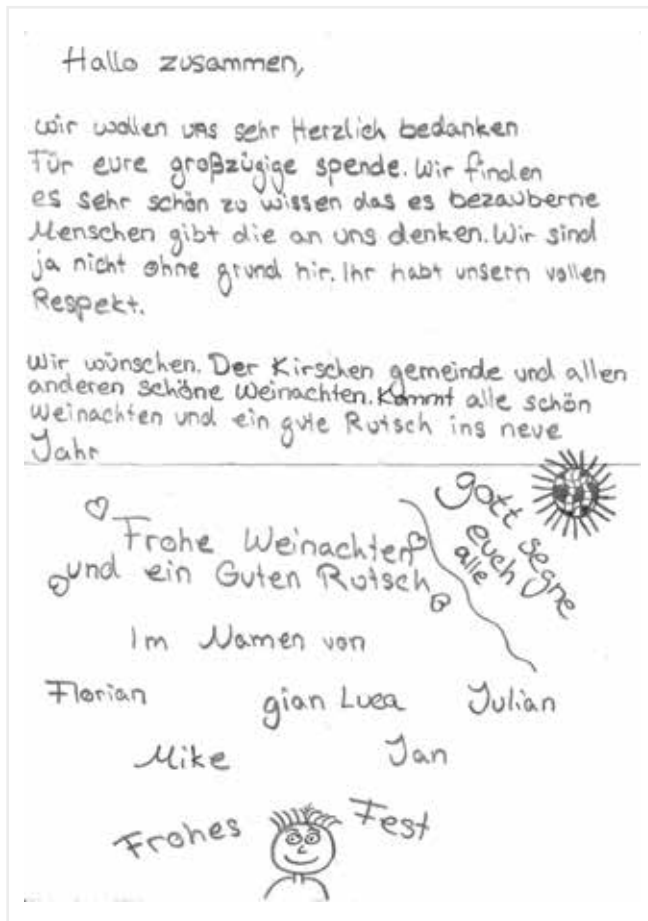 Hallo zusammen,
wir wollen uns sehr Herzlich bedanken
Für eure großzügige spende. Wir finden
es sehr schön zu wissen das es bezauberne
Menschen gibt die an uns denken. Wir sind
ja nicht ohne grund hir. Ihr habt unsern vollen
Respekt.
Wir wünschen. Der Kirschen gemeinde und allen
anderen schöne Weinachten. Kommt alle schön
Weinachten und ein gute Rutsch ins neue
Jahr
gott segne
euch
alle
Frohe Weinachten
und ein Guten Rutsch
Im Namen von
Florian gian Luca Julian
Mike Jan
Frohes Fest